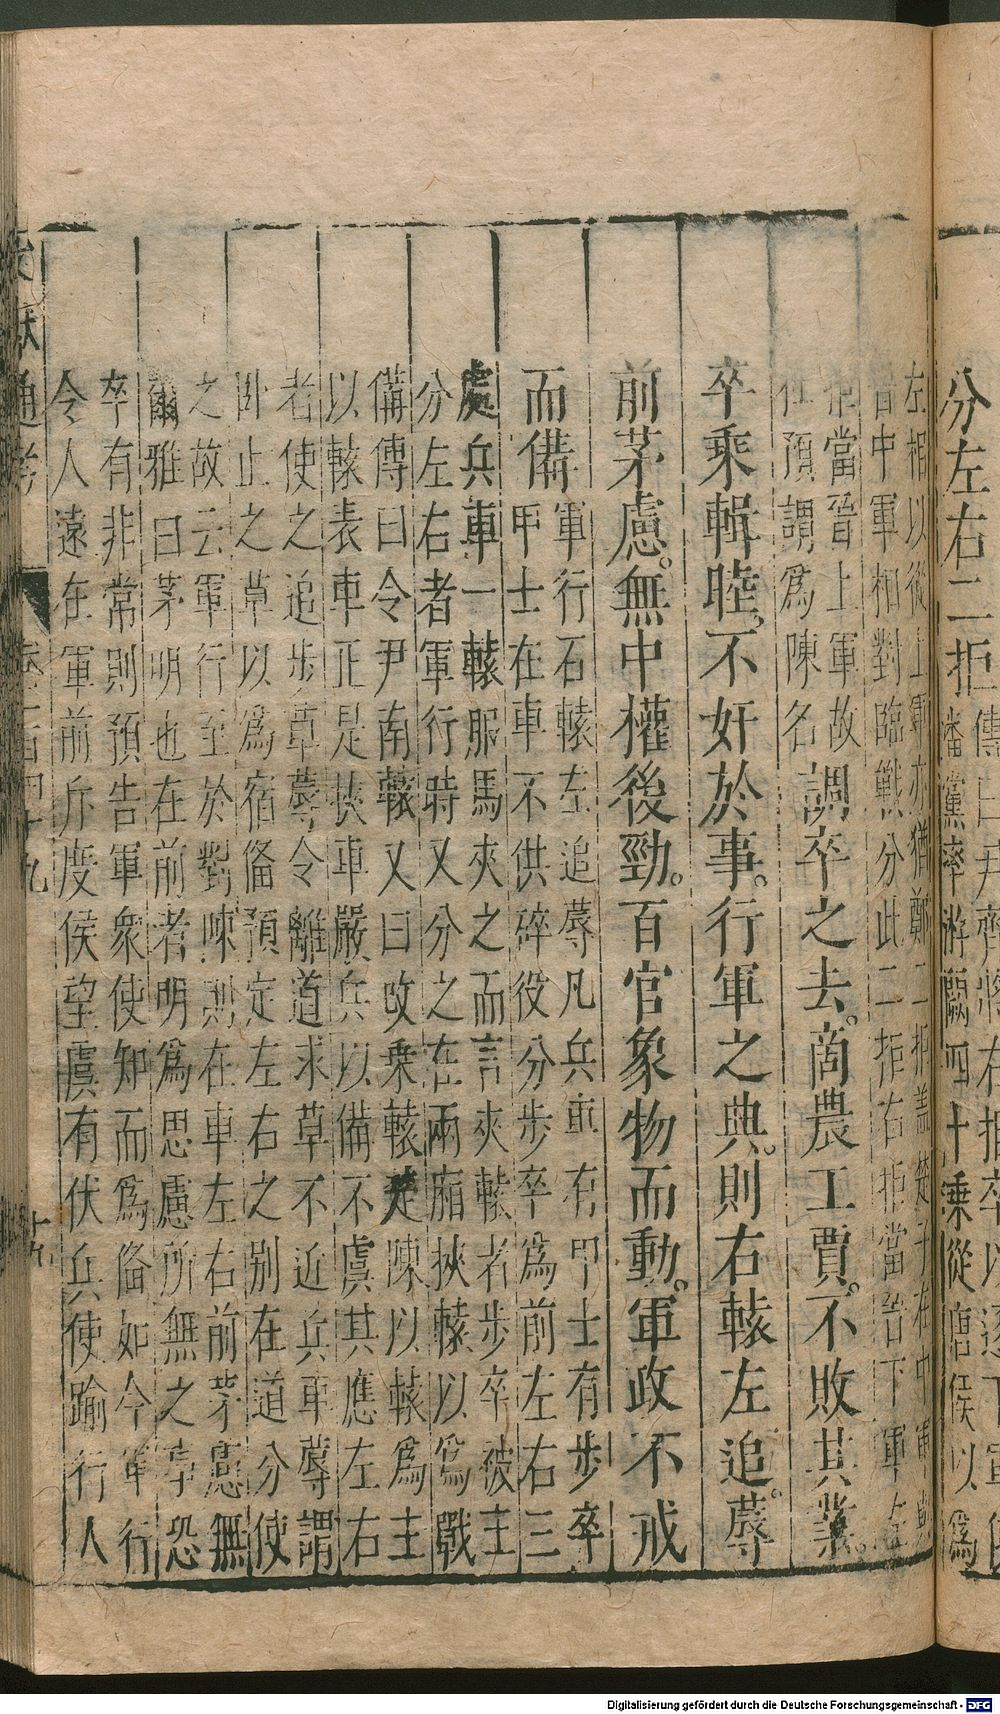 分左右二拒
潘黨率游闕四十乗從唐侯以爲
左相以後二廣亦猶鄭二拒蓋楚子在中軍與
晉中軍相對臨戰分此二拒右拒當晉下軍左
拒當晉上軍故
杜預謂爲陳名
調卒之去。商農工賈。不敗其業。
卒乘輯睦。不奸於事。行軍之典。則右轅左追蓐。
前茅慮。無中權後勁。百官象物而動。軍政不戒
而備
軍行石轅左追蓐凡兵車有甲士有步卒
甲士在車不供碎役分步卒爲前左右三
處兵車一轅服馬夾之而言夾轅者步卒被主
分左右者軍行時又分之在兩廂挾轅以爲戰
備傳曰令尹南轅又曰改乗轅楚陳以轅爲主
以轅表車正是挾車嚴兵以備不虞其應左右
者使之追步草蓐令離道求草不近兵車蓐謂
卧止之草以爲宿俻預定左右之别在道分使
之故云軍行至於對陳則在車左右前茅慮無
爾雅曰茅明也在前者明爲思慮所無之事恐
卒有非常則預告軍衆使知而爲俻如今軍行
令人遠在軍前斥度侯望虞有伏兵使踰行人
文獻通考
卷一百四十九
十九
Digitalisierung gefördert durch die Deutsche Forschungsgemeinschaft - DFG